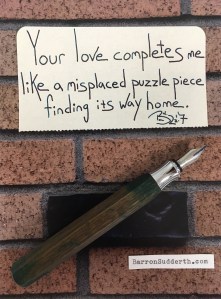 Your love completes me
like a misplaced puzzle piece
finding its way home.
BarronSudderth.com